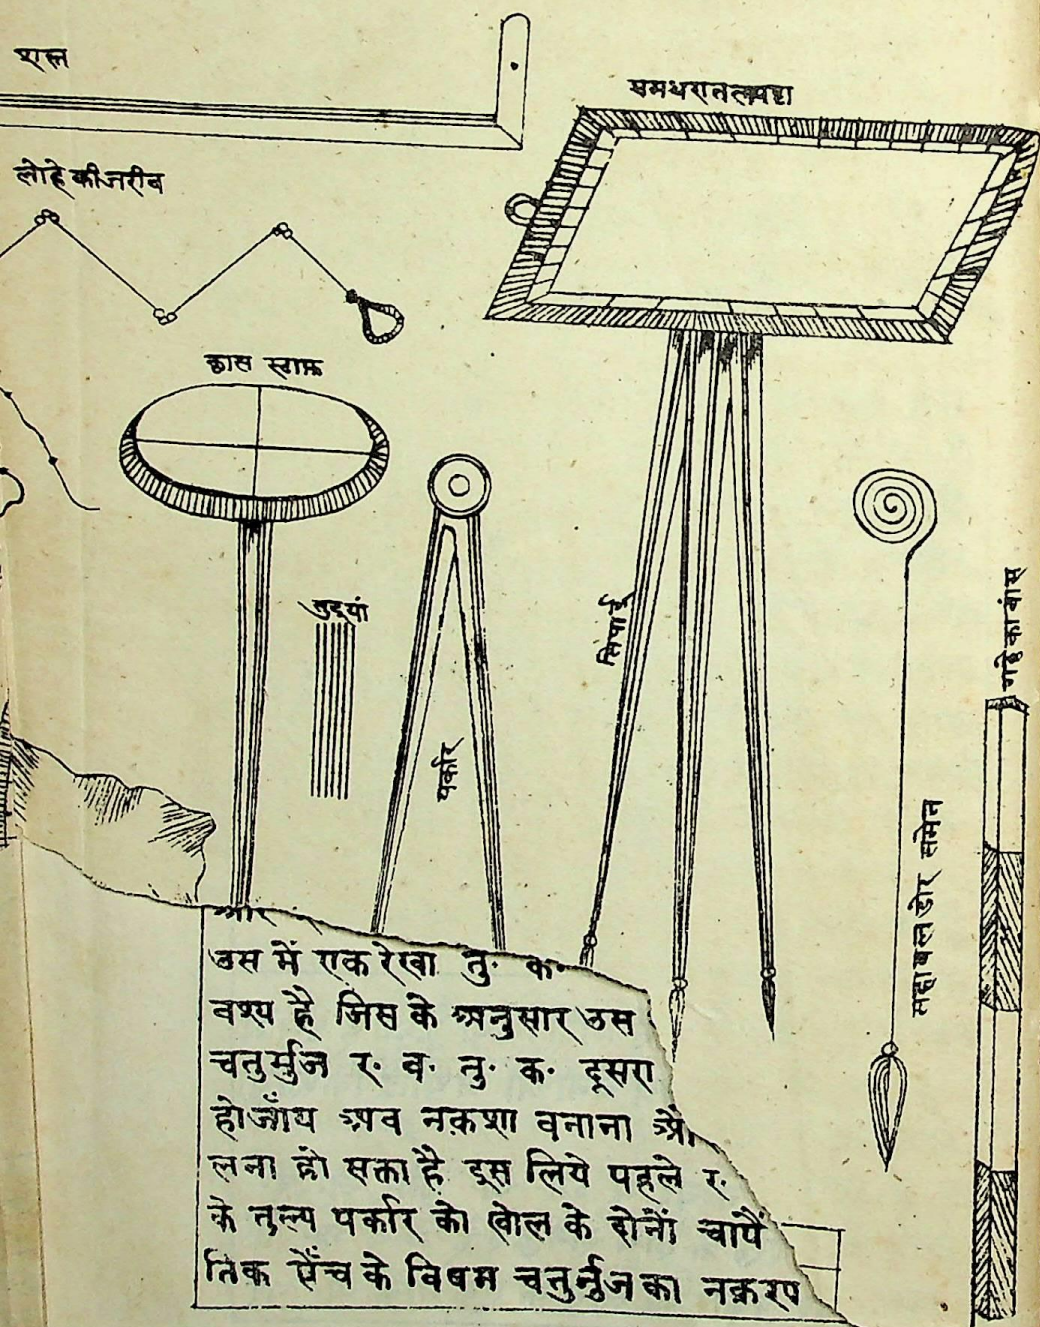 शस्त्र
समधरातलपट्टा
लोहे की जरीब
क्रास स्टाफ़
तुइयां
पर्कार
तिपाई
गट्ठे का बांस
सहाबल डोर समेत
और
उस में एक रेखा तु॰ क॰
वश्य है जिस के अनुसार उस
चतुर्भुज र॰ व॰ तु॰ क॰ दूसरा
होजाँय अब नक़शा बनाना औ
लना हो सक्ता है इस लिये पहले र॰
के तुल्य पर्कार को खोल के दोनों चापैं
तिक खैंच के विषम चतुर्भुज का नक़श